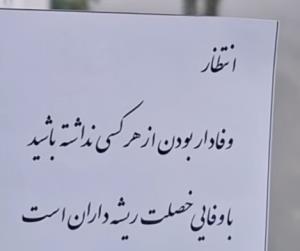 انتظار
وفادار بودن از هر کسی نداشته باشید
باوفایی خصلت ریشه داران است